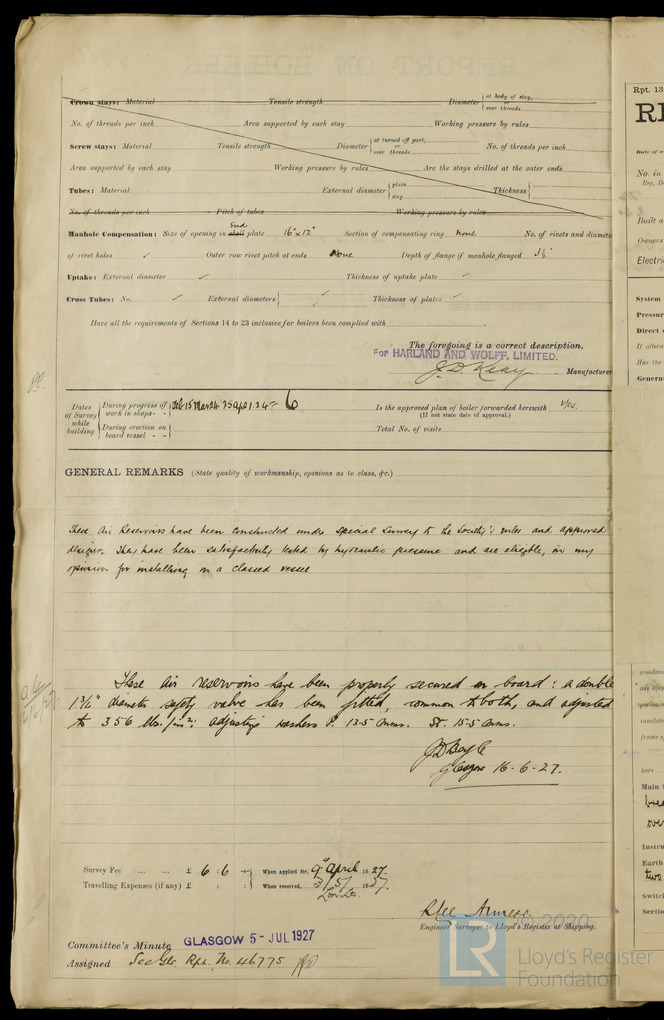 Crown stays: Material Tensile strength Diameter { at body of stay, or over threads
No. of threads per inch Area supported by each stay Working pressure by rules
Screw stays: Material Tensile strength Diameter { at turned off part, or over threads No. of threads per inch
Area supported by each stay Working pressure by rules Are the stays drilled at the outer ends
Tubes: Material External diameter { plain stay Thickness {
No. of threads per inch Pitch of tubes Working pressure by rules
Manhole Compensation: Size of opening in shell End plate 16" x 12" Section of compensating ring None No. of rivets and diamete
of rivet holes ✓ Outer row rivet pitch at ends None Depth of flange if manhole flanged 3½"
Uptake: External diameter ✓ Thickness of uptake plate ✓
Cross Tubes: No. ✓ External diameters { ✓ Thickness of plates ✓
Have all the requirements of Sections 14 to 23 inclusive for boilers been complied with
The foregoing is a correct description,
For HARLAND AND WOLFF, LIMITED.
J.D. Keay. Manufacturer
Dates of Survey while building { During progress of work in shops - - Feb 15 Mar 24 25 Apl 1. 24 = 6 Is the approved plan of boiler forwarded herewith yes.
(If not state date of approval.)
During erection on board vessel - - Total No. of visits
GENERAL REMARKS (State quality of workmanship, opinions as to class, &c.)
These Air Reservoirs have been constructed under special survey to the Society's rules and approved
designs. They have been satisfactorily tested by hydraulic pressure and are eligible, in my
opinion for installing on a classed vessel
These air reservoirs have been properly secured on board: a double
diameter safety valve has been fitted, common to both, and adjusted
to 356 lbs./in²: adjusting washers P. 13.5 mms. St. 15.5 mms.
J D Boyle
Glasgow 16-6-27.
Survey Fee ... ... £ 6 : 6 When applied for, 9th April 1927.
Travelling Expenses (if any) £ : : When received, 3/5/ 1927
Engineer Surveyor to Lloyd's Register of Shipping.
Committee's Minute GLASGOW 5 - JUL 1927
Assigned See Gls. Rpt. No. 46775
© 2020
LR Lloyd's Register
Foundation
Rpt. 13
RE
Date of w
No. in
Reg. B
Built a
Owners
Electric
System
Pressur
Direct
If altera
Has the
General
Main
Instru
Earth
two
Switch
Sectio